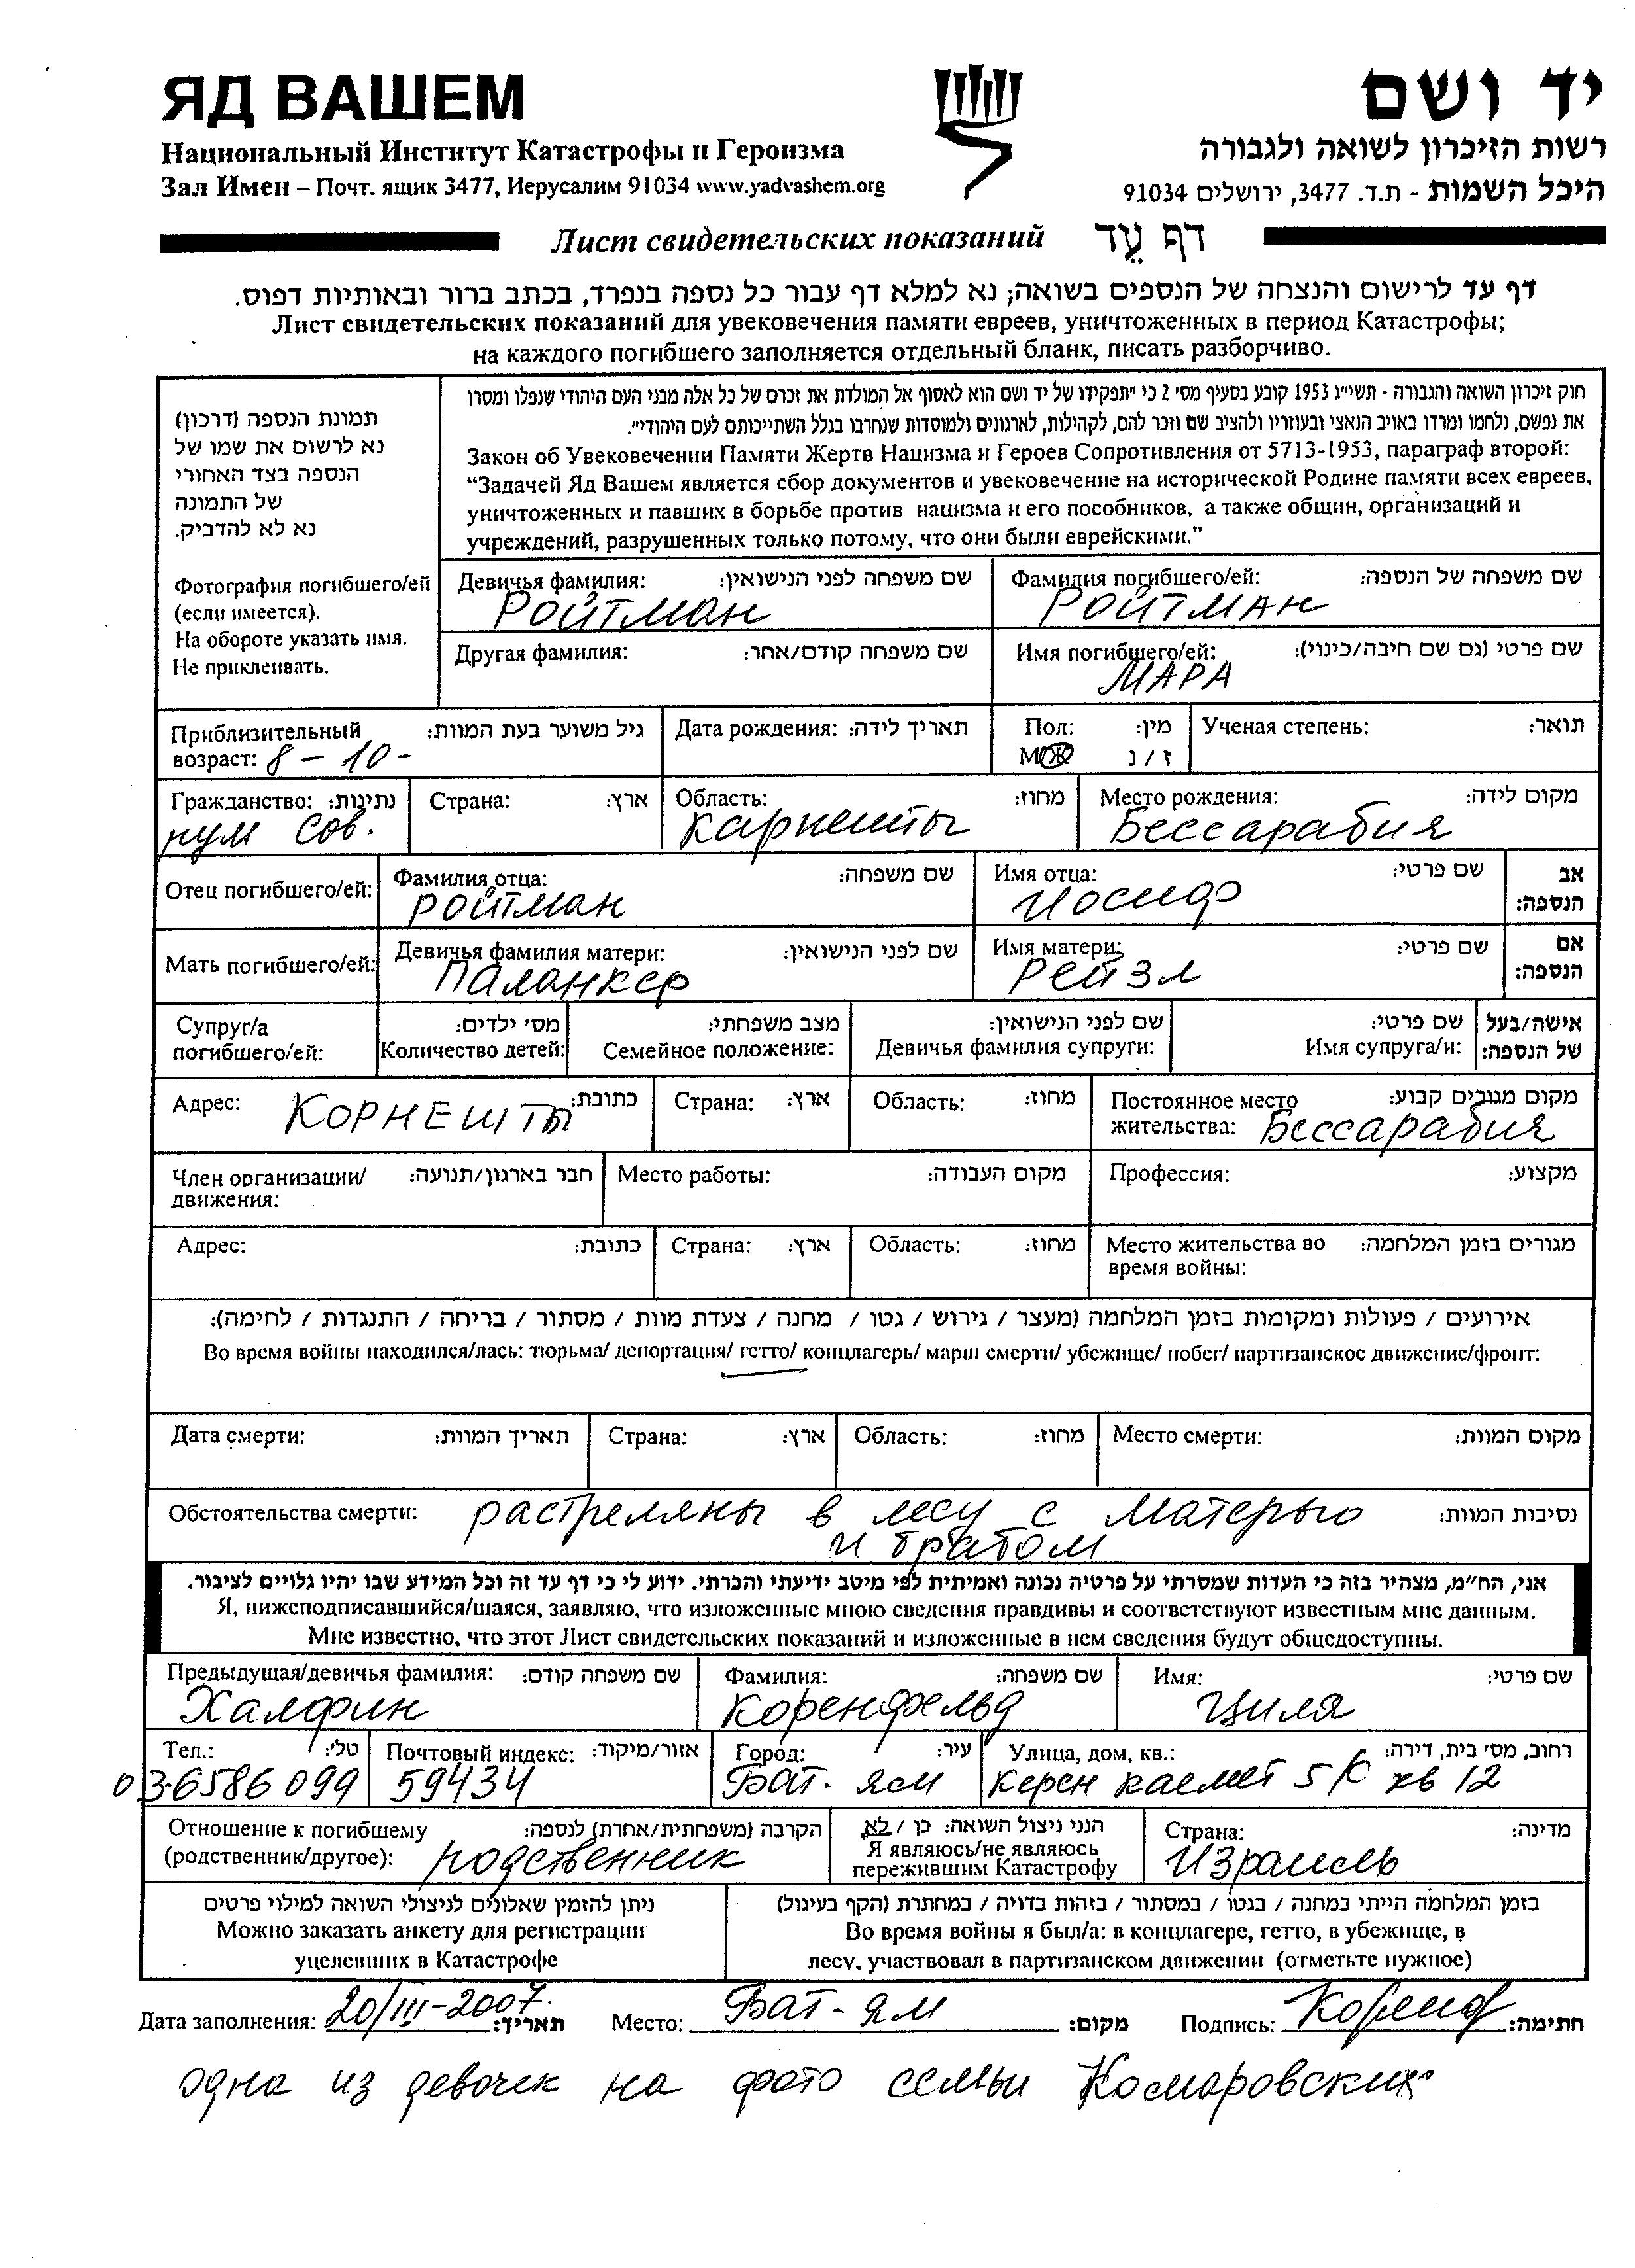 ЯД ВАШЕМ
יד ושם
Национальный Институт Катастрофы и Героизма
רשות הזיכרון לשואה ולגבורה
Зал Имен – Почт. ящик 3477, Иерусалим 91034 www.yadvashem.org
היכל השמות - ת.ד. 3477, ירושלים 91034
Лист свидетельских показаний דף עֵד
דף עד לרישום והנצחה של הנספים בשואה; נא למלא דף עבור כל נספה בנפרד, בכתב ברור ובאותיות דפוס.
Лист свидетельских показаний для увековечения памяти евреев, уничтоженных в период Катастрофы;
на каждого погибшего заполняется отдельный бланк, писать разборчиво.
תמונת הנספה (דרכון)
נא לרשום את שמו של
הנספה בצד האחורי
של התמונה
נא לא להדביק.
Фотография погибшего/ей
(если имеется).
На обороте указать имя.
Не приклеивать.
חוק זיכרון השואה והגבורה - תשי״ג 1953 קובע בסעיף מס׳ 2 כי ״תפקידו של יד ושם הוא לאסוף אל המולדת את זכרם של כל אלה מבני העם היהודי שנפלו ומסרו
את נפשם, נלחמו ומרדו באויב הנאצי ובעוזריו ולהציב שם וזכר להם, לקהילות, לארגונים ולמוסדות שנחרבו בגלל השתייכותם לעם היהודי״.
Закон об Увековечении Памяти Жертв Нацизма и Героев Сопротивления от 5713-1953, параграф второй:
“Задачей Яд Вашем является сбор документов и увековечение на исторической Родине памяти всех евреев,
уничтоженных и павших в борьбе против нацизма и его пособников, а также общин, организаций и
учреждений, разрушенных только потому, что они были еврейскими.”
Девичья фамилия: שם משפחה לפני הנישואין:
Ройтман
Фамилия погибшего/ей: שם משפחה של הנספה:
РОЙТМАН
Другая фамилия: שם משפחה קודם/אחר:
Имя погибшего/ей: שם פרטי (גם שם חיבה/כינוי):
МАРА
Приблизительный גיל משוער בעת המוות:
возраст: 8 – 10 -
Дата рождения: תאריך לידה:
Пол: מין:
М/Ж ז / נ
Ученая степень: תואר:
Гражданство: נתינות:
рум сов.
Страна: ארץ:
Область: מחוז:
Карнешты
Место рождения: מקום לידה:
Бессарабия
Отец погибшего/ей:
Фамилия отца: שם משפחה:
Ройтман
Имя отца: שם פרטי:
Иосиф
אב
הנספה:
Мать погибшего/ей:
Девичья фамилия матери: שם לפני הנישואין:
Паланкер
Имя матери: שם פרטי:
Рейзл
אם
הנספה:
Супруг/а
погибшего/ей:
מס׳ ילדים:
Количество детей:
מצב משפחתי:
Семейное положение:
שם לפני הנישואין:
Девичья фамилия супруги:
שם פרטי:
Имя супруга/и:
אישה/בעל
של הנספה:
Адрес: Корнешты כתובת:
Страна: ארץ:
Область: מחוז:
Постоянное место מקום מגורים קבוע:
жительства: Бессарабия
Член организации/ חבר בארגון/תנועה:
движения:
Место работы: מקום העבודה:
Профессия: מקצוע:
Адрес: כתובת:
Страна: ארץ:
Область: מחוז:
Место жительства во מגורים בזמן המלחמה:
время войны:
אירועים / פעולות ומקומות בזמן המלחמה (מעצר / גירוש / גטו / מחנה / צעדת מוות / מסתור / בריחה / התנגדות / לחימה):
Во время войны находился/лась: тюрьма/ депортация/ гетто/ концлагерь/ марш смерти/ убежище/ побег/ партизанское движение/фронт:
Дата смерти: תאריך המוות:
Страна: ארץ:
Область: מחוז:
Место смерти: מקום המוות:
Обстоятельства смерти: растреляны в лесу с матерью נסיבות המוות:
и братом
אני, הח״מ, מצהיר בזה כי העדות שמסרתי על פרטיה נכונה ואמיתית לפי מיטב ידיעתי והכרתי. ידוע לי כי דף עד זה וכל המידע שבו יהיו גלויים לציבור.
Я, нижеподписавшийся/шаяся, заявляю, что изложенные мною сведения правдивы и соответствуют известным мне данным.
Мне известно, что этот Лист свидетельских показаний и изложенные в нем сведения будут общедоступны.
Предыдущая/девичья фамилия: שם משפחה קודם:
Халфин
Фамилия: שם משפחה:
Коренфельд
Имя: שם פרטי:
Циля
Тел.: טל׳:
036586099
Почтовый индекс: אזור/מיקוד:
59434
Город: עיר:
Бат-ям
Улица, дом, кв.: רחוב, מס׳ בית, דירה:
Керен каемет 5/К кв 12
Отношение к погибшему הקרבה (משפחתית/אחרת) לנספה:
(родственник/другое): родственник
הנני ניצול השואה: כן / לא
Я являюсь/не являюсь
пережившим Катастрофу
Страна: מדינה:
Израиль
ניתן להזמין שאלונים לניצולי השואה למילוי פרטים
Можно заказать анкету для регистрации
уцелевших в Катастрофе
בזמן המלחמה הייתי במחנה / בגטו / במסתור / בזהות בדויה / במחתרת (הקף בעיגול)
Во время войны я был/а: в концлагере, гетто, в убежище, в
лесу, участвовал в партизанском движении (отметьте нужное)
Дата заполнения: 20/III-2007. תאריך: Место: Бат-ям מקום: Подпись: Коренф חתימה:
одна из девочек на фото семьи Комаровских